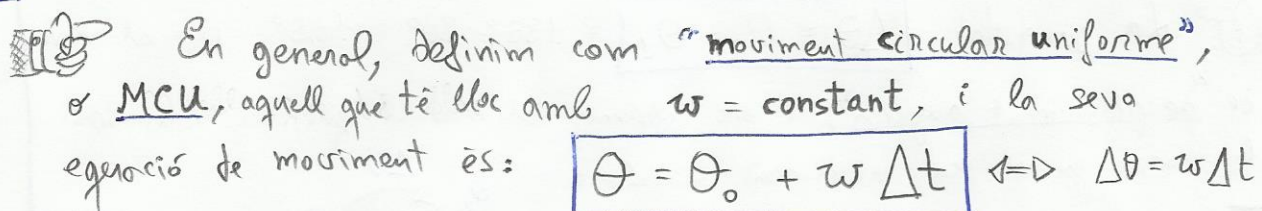 En general, definim com "moviment circular uniforme",
o MCU, aquell que té lloc amb w = constant, i la seva
equació de moviment és: θ = θ₀ + w Δt <=> Δθ = w Δt